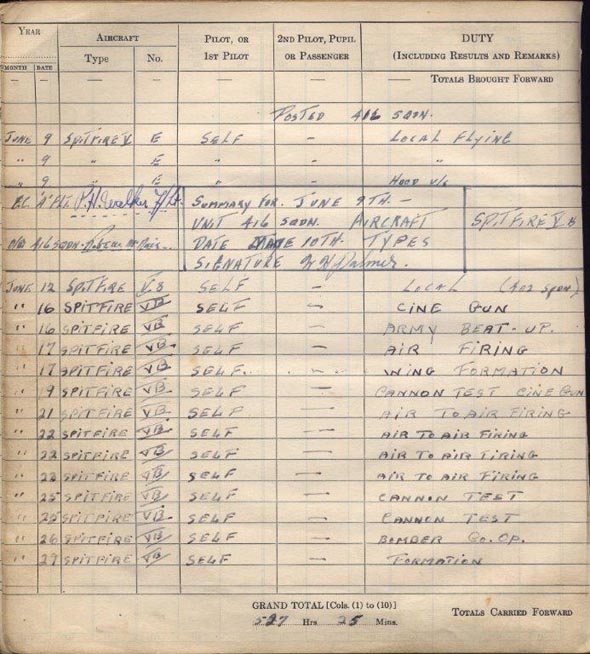 YEAR AIRCRAFT PILOT, OR 1ST PILOT 2ND PILOT, PUPIL OR PASSENGER DUTY (INCLUDING RESULTS AND REMARKS)
MONTH DATE Type No.
— — — — — — TOTALS BROUGHT FORWARD
POSTED 416 SQDN.
JUNE 9 SPITFIRE V E SELF — LOCAL FLYING
" 9 " E " — "
" 9 " E " — HOOD
SUMMARY FOR. JUNE 9TH. —
UNIT 416 SQDN. AIRCRAFT SPITFIRE V.B
416 SQDN. DATE JUNE 10TH. TYPES
SIGNATURE
JUNE 12 SPITFIRE V.B SELF — LOCAL (402 SQDN)
" 16 SPITFIRE VB SELF — CINE GUN
" 16 SPITFIRE VB SELF — ARMY BEAT-UP.
" 17 SPITFIRE VB SELF — AIR FIRING
" 17 SPITFIRE VB SELF. — WING FORMATION
" 19 SPITFIRE VB SELF — CANNON TEST CINE GUN
" 21 SPITFIRE VB SELF — AIR TO AIR FIRING
" 22 SPITFIRE VB SELF — AIR TO AIR FIRING
" 22 SPITFIRE VB SELF — AIR TO AIR FIRING
" 22 SPITFIRE VB SELF — AIR TO AIR FIRING
" 25 SPITFIRE VB SELF — CANNON TEST
" 25 SPITFIRE VB SELF — CANNON TEST
" 26 SPITFIRE VB SELF — BOMBER CO.OP.
" 27 SPITFIRE VB SELF — FORMATION
GRAND TOTAL [Cols. (1) to (10)]
527 Hrs 25 Mins.
TOTALS CARRIED FORWARD